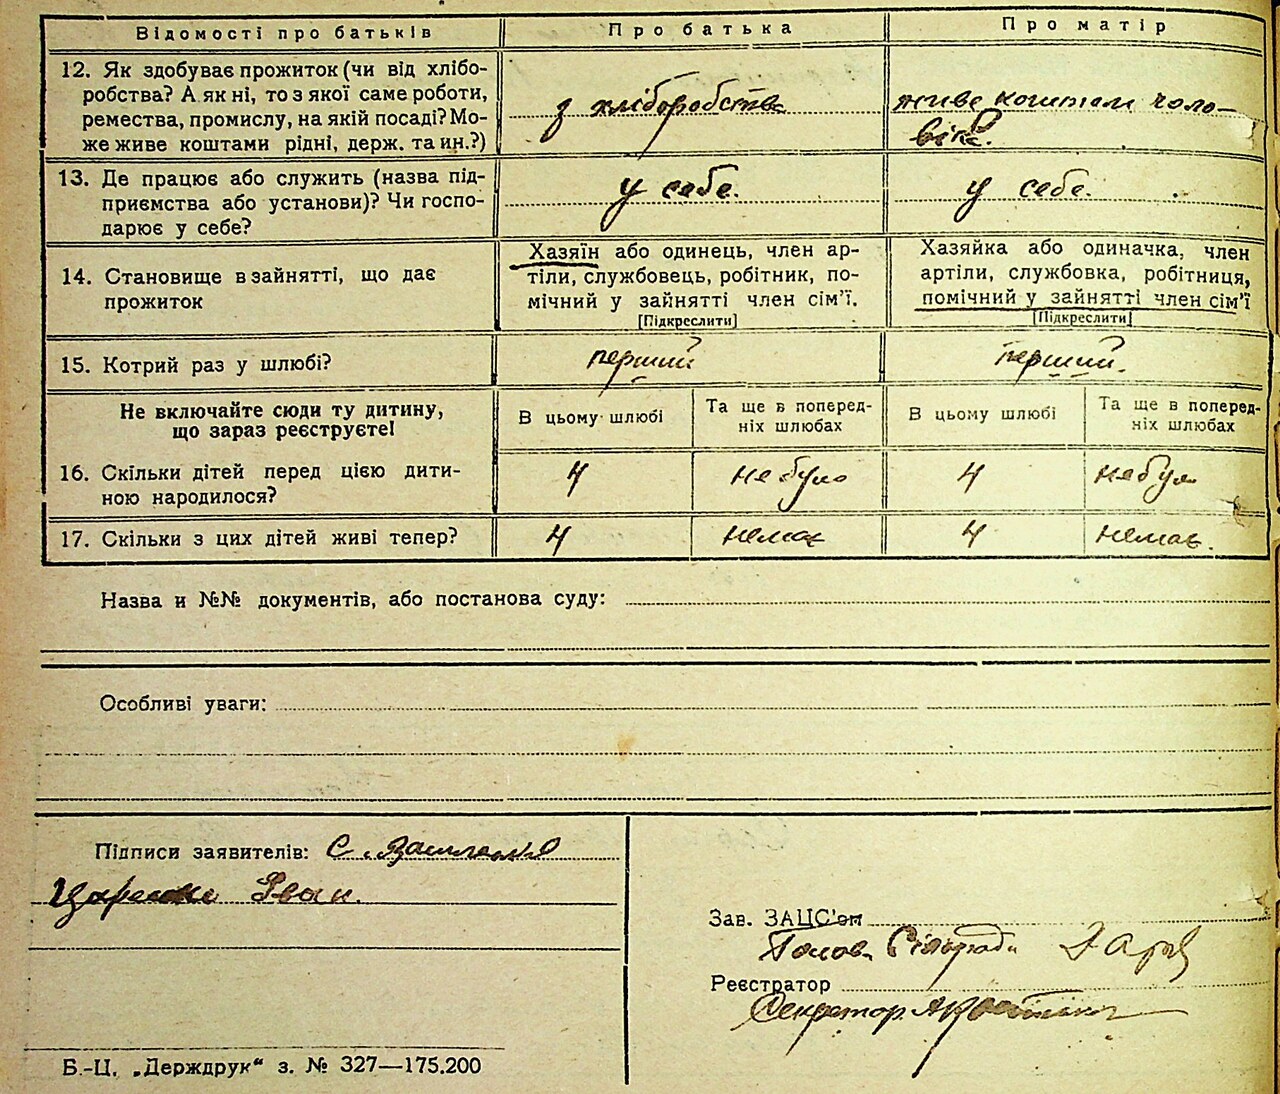 Відомості про батьків
Про батька
Про матір
12. Як здобуває прожиток (чи від хлібо-
робства? А як ні, то з якої саме роботи,
ремества, промислу, на якій посаді? Мо-
же живе коштами рідні, держ. та ин.?)
з хліборобства
живе коштом чоло-
віка.
13. Де працює або служить (назва під-
приємства або установи)? Чи госпо-
дарює у себе?
у себе.
у себе.
14. Становище в зайнятті, що дає
прожиток
Хазяїн або одинець, член ар-
тіли, службовець, робітник, по-
мічний у зайнятті член сім'ї.
[Підкреслити]
Хазяйка або одиначка, член
артіли, службовка, робітниця,
помічний у зайнятті член сім'ї
[Підкреслити]
15. Котрий раз у шлюбі?
перший
перший.
Не включайте сюди ту дитину,
що зараз реєструєте!
В цьому шлюбі
Та ще в поперед-
ніх шлюбах
В цьому шлюбі
Та ще в поперед-
ніх шлюбах
16. Скільки дітей перед цією дити-
ною народилося?
4
не було
4
не було
17. Скільки з цих дітей живі тепер?
4
немає
4
немає.
Назва и №№ документів, або постанова суду:
Особливі уваги:
Підписи заявителів: С.
Іван.
Зав. ЗАЦС'ом
Голова Сільради
Реєстратор
Секретар
Б.-Ц. „Держдрук“ з. № 327—175.200